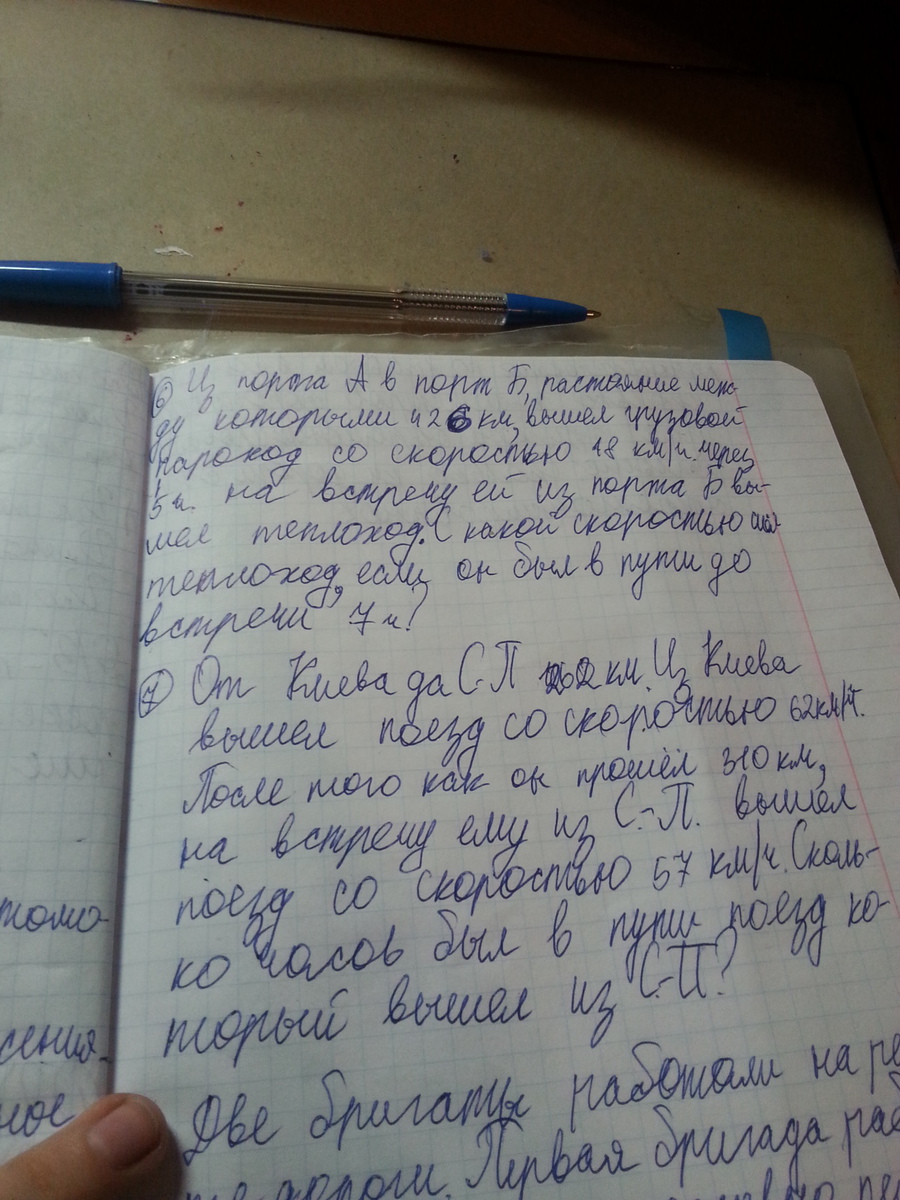 6 Из порта А в порт Б, растояние меж-
ду которыми 426 км, вышел грузовой
пароход со скоростью 18 км/ч. через
5 ч. на встречу ей из порта Б вы-
шел теплоход. С какой скоростью
теплоход, если он был в пути до
встречи 7 ч?
7 От Киева да С-П км. Из Киева
вышел поезд со скоростью 62 км/ч.
После того как он прошёл 310 км,
на встречу ему из С.-П. вышел
поезд со скоростью 57 км/ч. Сколь-
ко часов был в пути поезд ко-
торый вышел из С.-П?
Две бригаты работали на ре
дороги. Первая бригада раб
тома-
сения-
ное